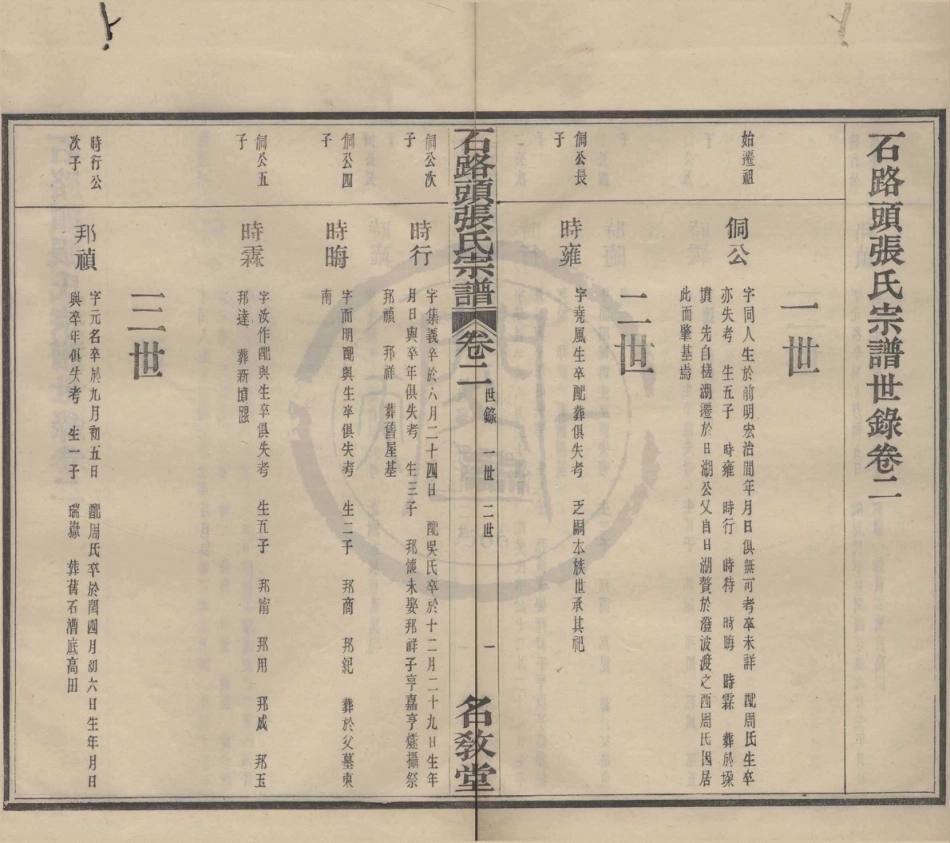 石路頭張氏宗譜世錄卷二
一世
始遷祖
侗公
字同人生於前明宏治間年月日俱無可考卒未詳 配周氏生卒
亦失考 生五子 時雍 時行 時待 時晦 時霖 葬於
墳 先自槎湖遷於日湖公又自日湖贅於澄波渡之西周氏因居
此而肇基焉
二世
侗公長
子
時雍
字堯風生卒配葬俱失考 乏嗣本族世承其祀
石路頭張氏宗譜
卷二
世錄 一世 二世
一
名敎堂
侗公次
子
時行
字集義卒於六月二十四日 配吳氏卒於十二月二十九日生年
月日與卒年俱失考 生三子 邦懷未娶邦祥子亨嘉亨燧攝祭
邦禎 邦祥 葬舊屋基
侗公四
子
時晦
字而明配與生卒俱失考 生二子 邦商 邦紀 葬於父墓東
南
侗公五
子
時霖
字汝作配與生卒俱失考 生五子 邦甯 邦用 邦咸 邦玉
邦達 葬新墳
三世
時行公
次子
邦禎
字元名卒於九月初五日 配周氏卒於閏四月初六日生年月日
與卒年俱失考 生一子 瑞嶽 葬舊石漕底高田